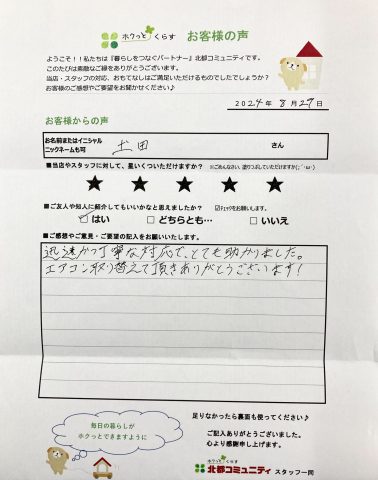 ホクっとくらす お客様の声
ようこそ！！私たちは『暮らしをつなぐパートナー』北都コミュニティです。
このたびは素敵なご縁をありがとうございます。
当店・スタッフの対応、おもてなしはご満足いただけるものでしたでしょうか？
お客様のご感想やご要望をお聞かせください♪
2024年 8月27日
お客様からの声
お名前またはイニシャル
ニックネームも可
土田 さん
■当店やスタッフに対して、星いくついただけますか？ ※ごめんなさい、塗りつぶしていただけますか(;´･ω･)
★ ★ ★ ★ ★
■ご友人や知人に紹介してもいいかなと思えましたか？ ☑チェックをお願いします。
☑はい □どちらとも… □いいえ
■ご感想やご意見・ご要望の記入をお願いいたします。
迅速かつ丁寧な対応で、とても助かりました。
エアコン取り替えて頂きありがとうございます！
足りなかったら裏面も使ってください♪
毎日の暮らしが
ホクっとできますように
ご記入ありがとうございました。
心より感謝申し上げます。
ホクっとくらす
北都コミュニティ スタッフ一同